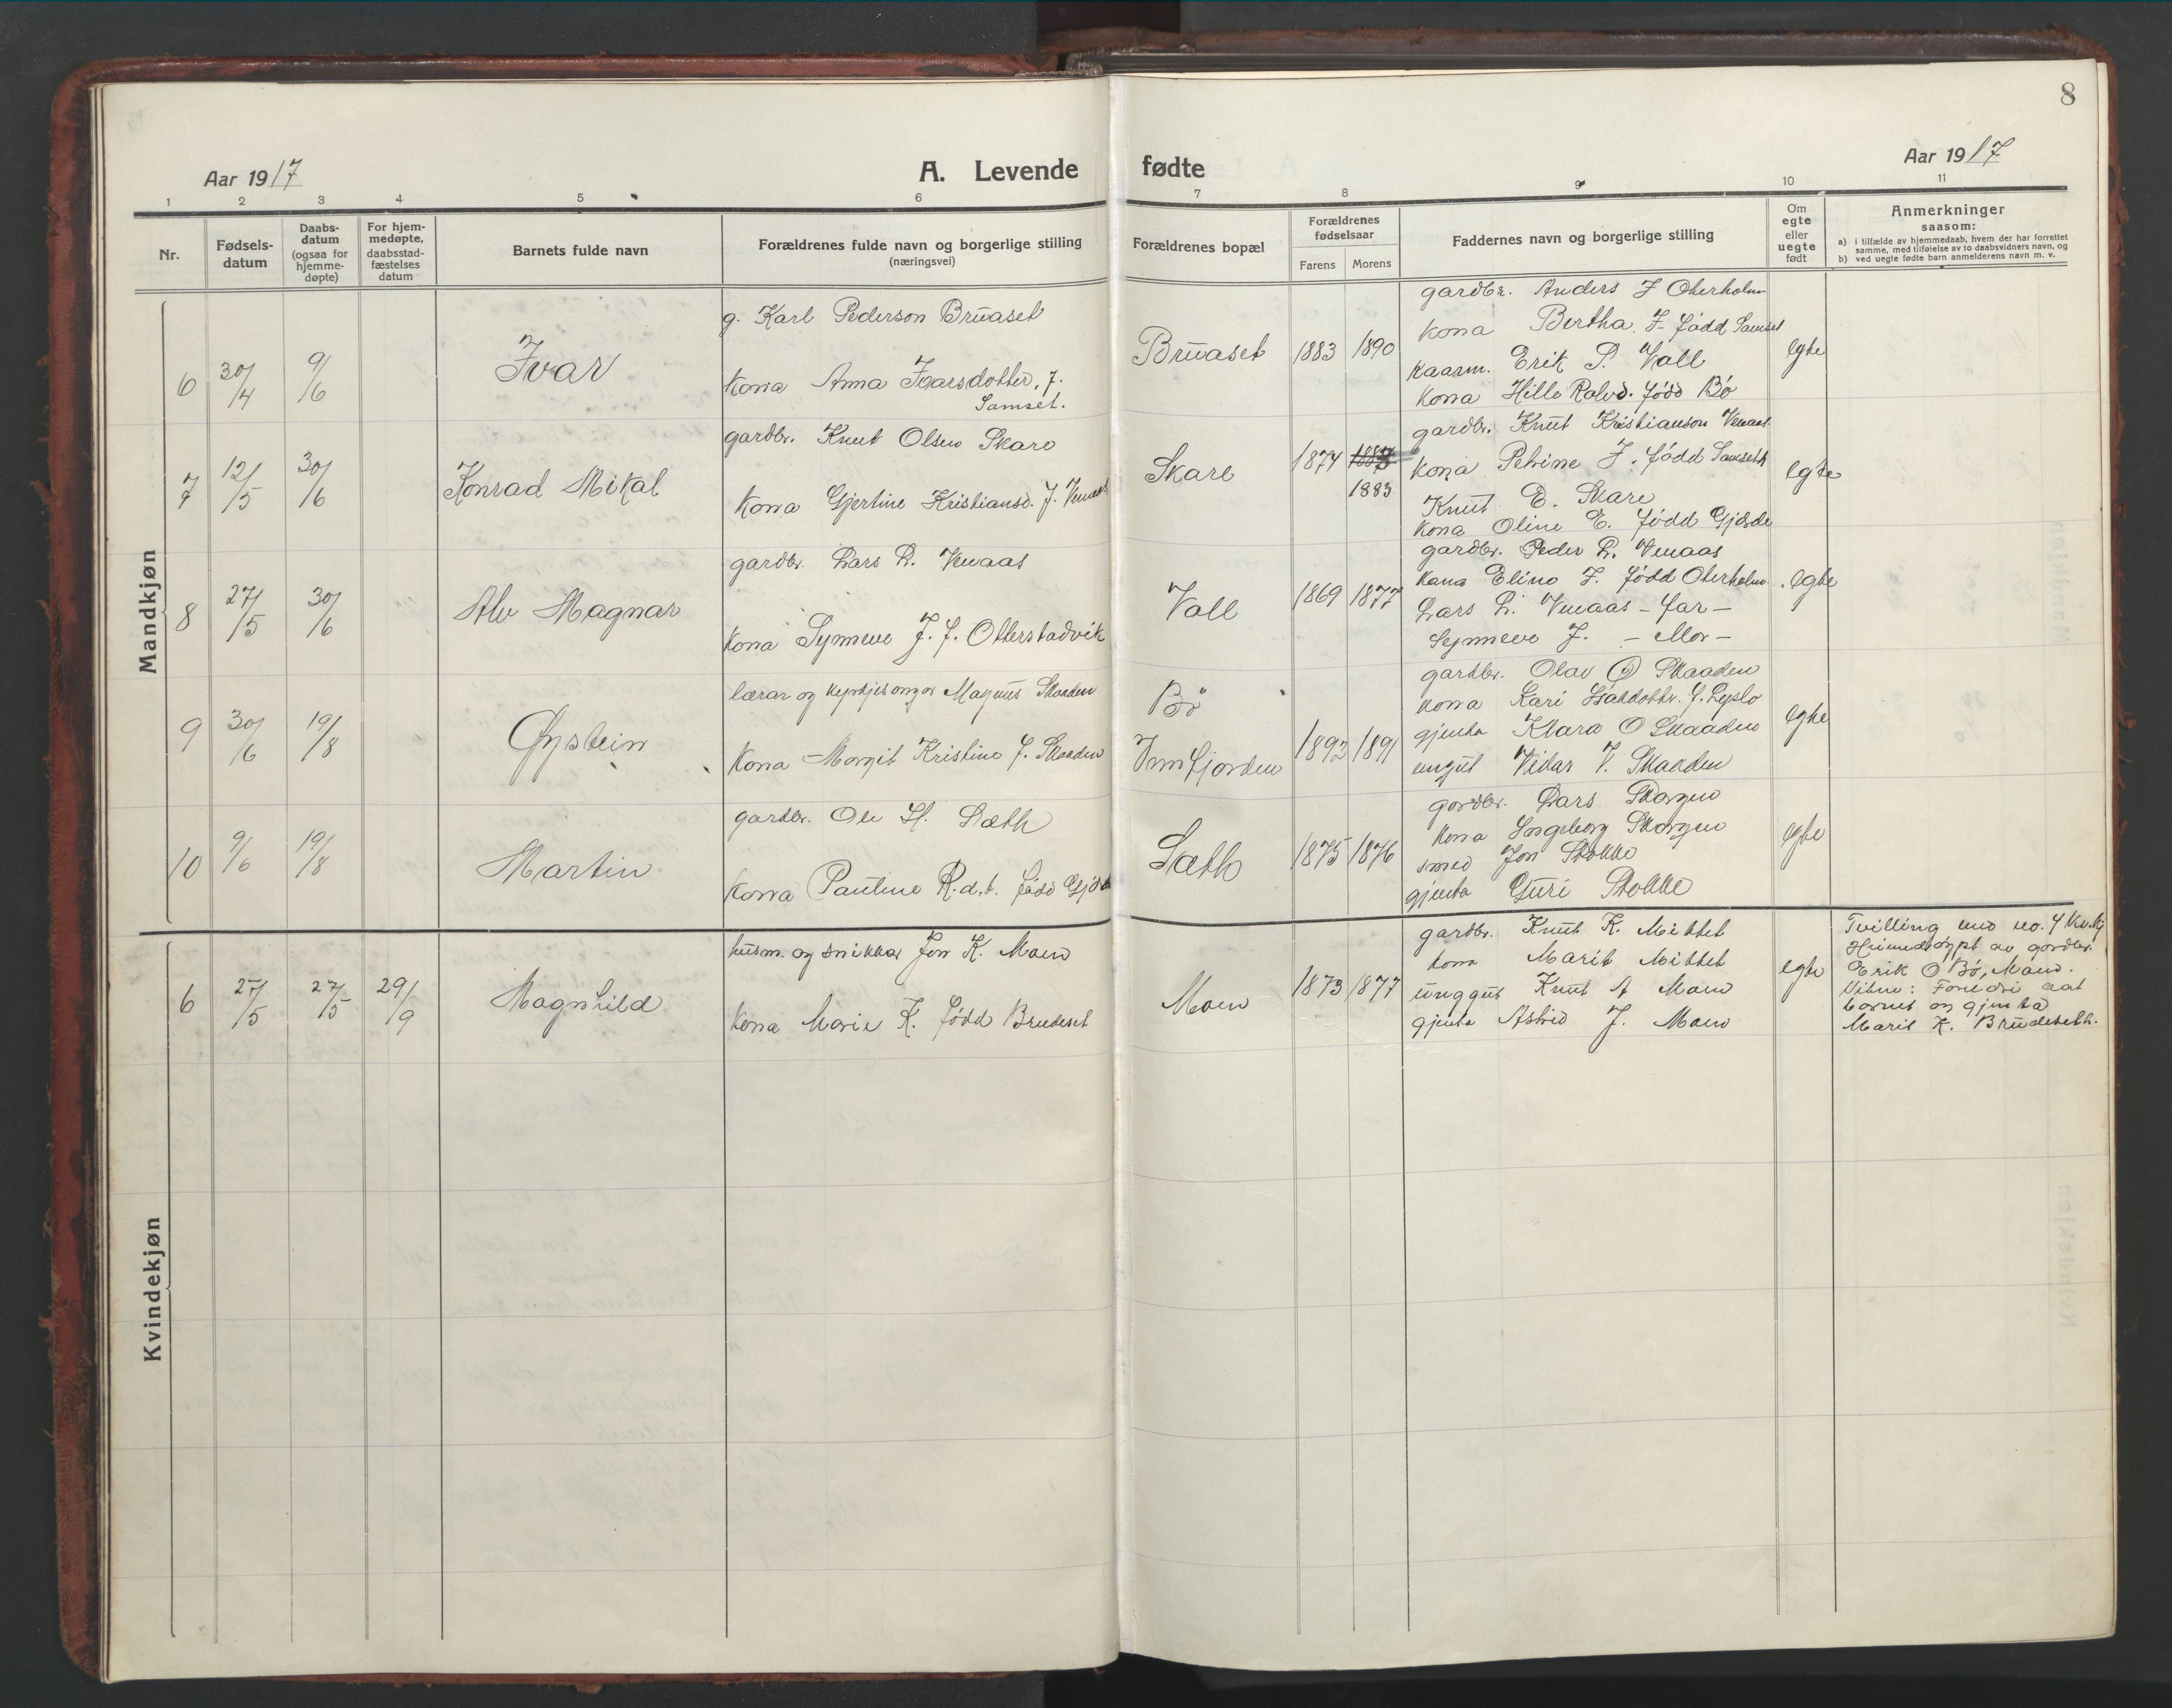 8
Aar 1917
A. Levende fødte
Aar 1917
1 2 3 4 5 6 7 8 9 10 11
Nr.
Fødsels-
datum
Daabs-
datum
(ogsaa for
hjemme-
døpte)
For hjem-
medøpte,
daabsstad-
fæstelses
datum
Barnets fulde navn
Forældrenes fulde navn og borgerlige stilling
(næringsvei)
Forældrenes bopæl
Forældrenes
fødselsaar
Farens Morens
Faddernes navn og borgerlige stilling
Om
egte
eller
uegte
født
Anmerkninger
saasom:
a) i tilfælde av hjemmedaab, hvem der har forrettet
samme, med tilføielse av to daabsvidners navn, og
b) ved uegte fødte barn anmelderens navn m. v.
Mandkjøn
6 30/4 9/6 Ivar
g. Karl Pederson Brüaset
Kona Anna Ivarsdotter, f.
Samset.
Brüaset 1883 1890
gardbr. Anders J Oterholm
Kona Bertha J. født Samset
kaarm. Erik P. Voll
Kona Hille Rolvd. fødd Bø
egte
7 12/5 30/6 Konrad Mikal
gardbr. Knut Olsen Skare
Kona Gjertine Kristiansd. f. Venaas
Skare 1874 1883
gardbr. Knüt Kristianson Venaas
Kona Petrine J. fødd Samseth
Knüt E. Skare
Kona Oline E. fødd Gjørde
egte
8 27/5 30/6 Alv Magnar
gardbr. Lars L. Venaas
Kona Synneve J. f. Otterstadvik
Voll 1869 1877
gardbr. Peder L. Venaas
Kona Eline J. fødd Oterholm
Lars L. Venaas - far -
Synneve J. - Mor -
egte
9 30/6 19/8 Øystein
lærar og kyrkjesongar Magnüs Skaaden
Kona Margit Kristine f. Skaaden
Bø
Innfjorden 1892 1891
gardbr. Olav O Skaaden
Kona Kari f.
gjenta Klara O Skaaden
ungüt Vidar V. Skaaden
egte
10 9/6 19/8 Martin
gardbr. Ole H. Sæth
Kona Pauline R.d.t. fødd
Sæth 1875 1876
gardbr. Lars Skorgen
Kona Ingeborg Skorgen
smed Jon Stokke
gjenta Güri Stokke
egte
Kvindekjøn
6 27/5 27/5 29/9 Magnhild
hüsm. og snikkar Jon K. Moen
Kona Marie K. fødd Brudeset
Moen 1873 1877
gardbr. Knüt K. Mittet
Kona Marit Mittet
ünggüt Knüt A Moen
gjenta Astrid J. Moen
egte
Tvilling med no. 4 Kv.kj
Heimedøypt av gardbr.
Erik O Bø, Moen.
Vitne: Foreldri aat
barnet og gjenta
Marit K. Brüdeseth.